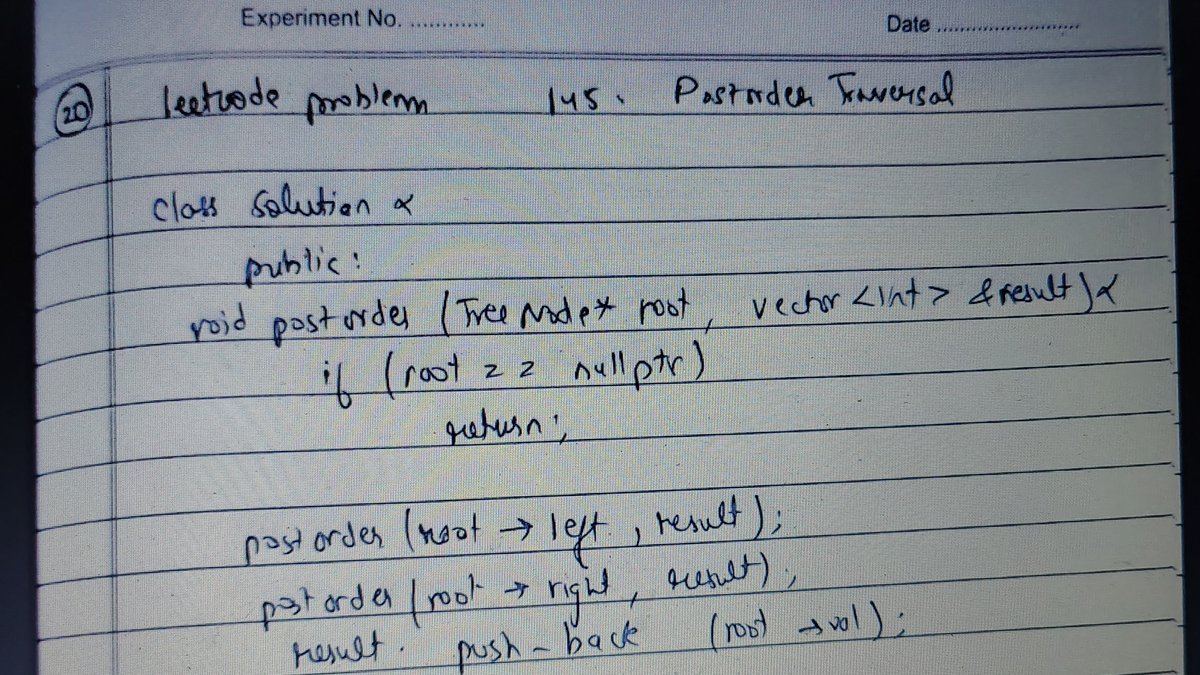 Experiment No. ............ Date ............................
20 leetcode problem 145. Postorder Traversal
class Solution {
public:
void postorder (TreeNode* root, vector <int> &result) {
if (root == nullptr)
return;
postorder (root → left, result);
postorder (root → right, result);
result. push-back (root → val);